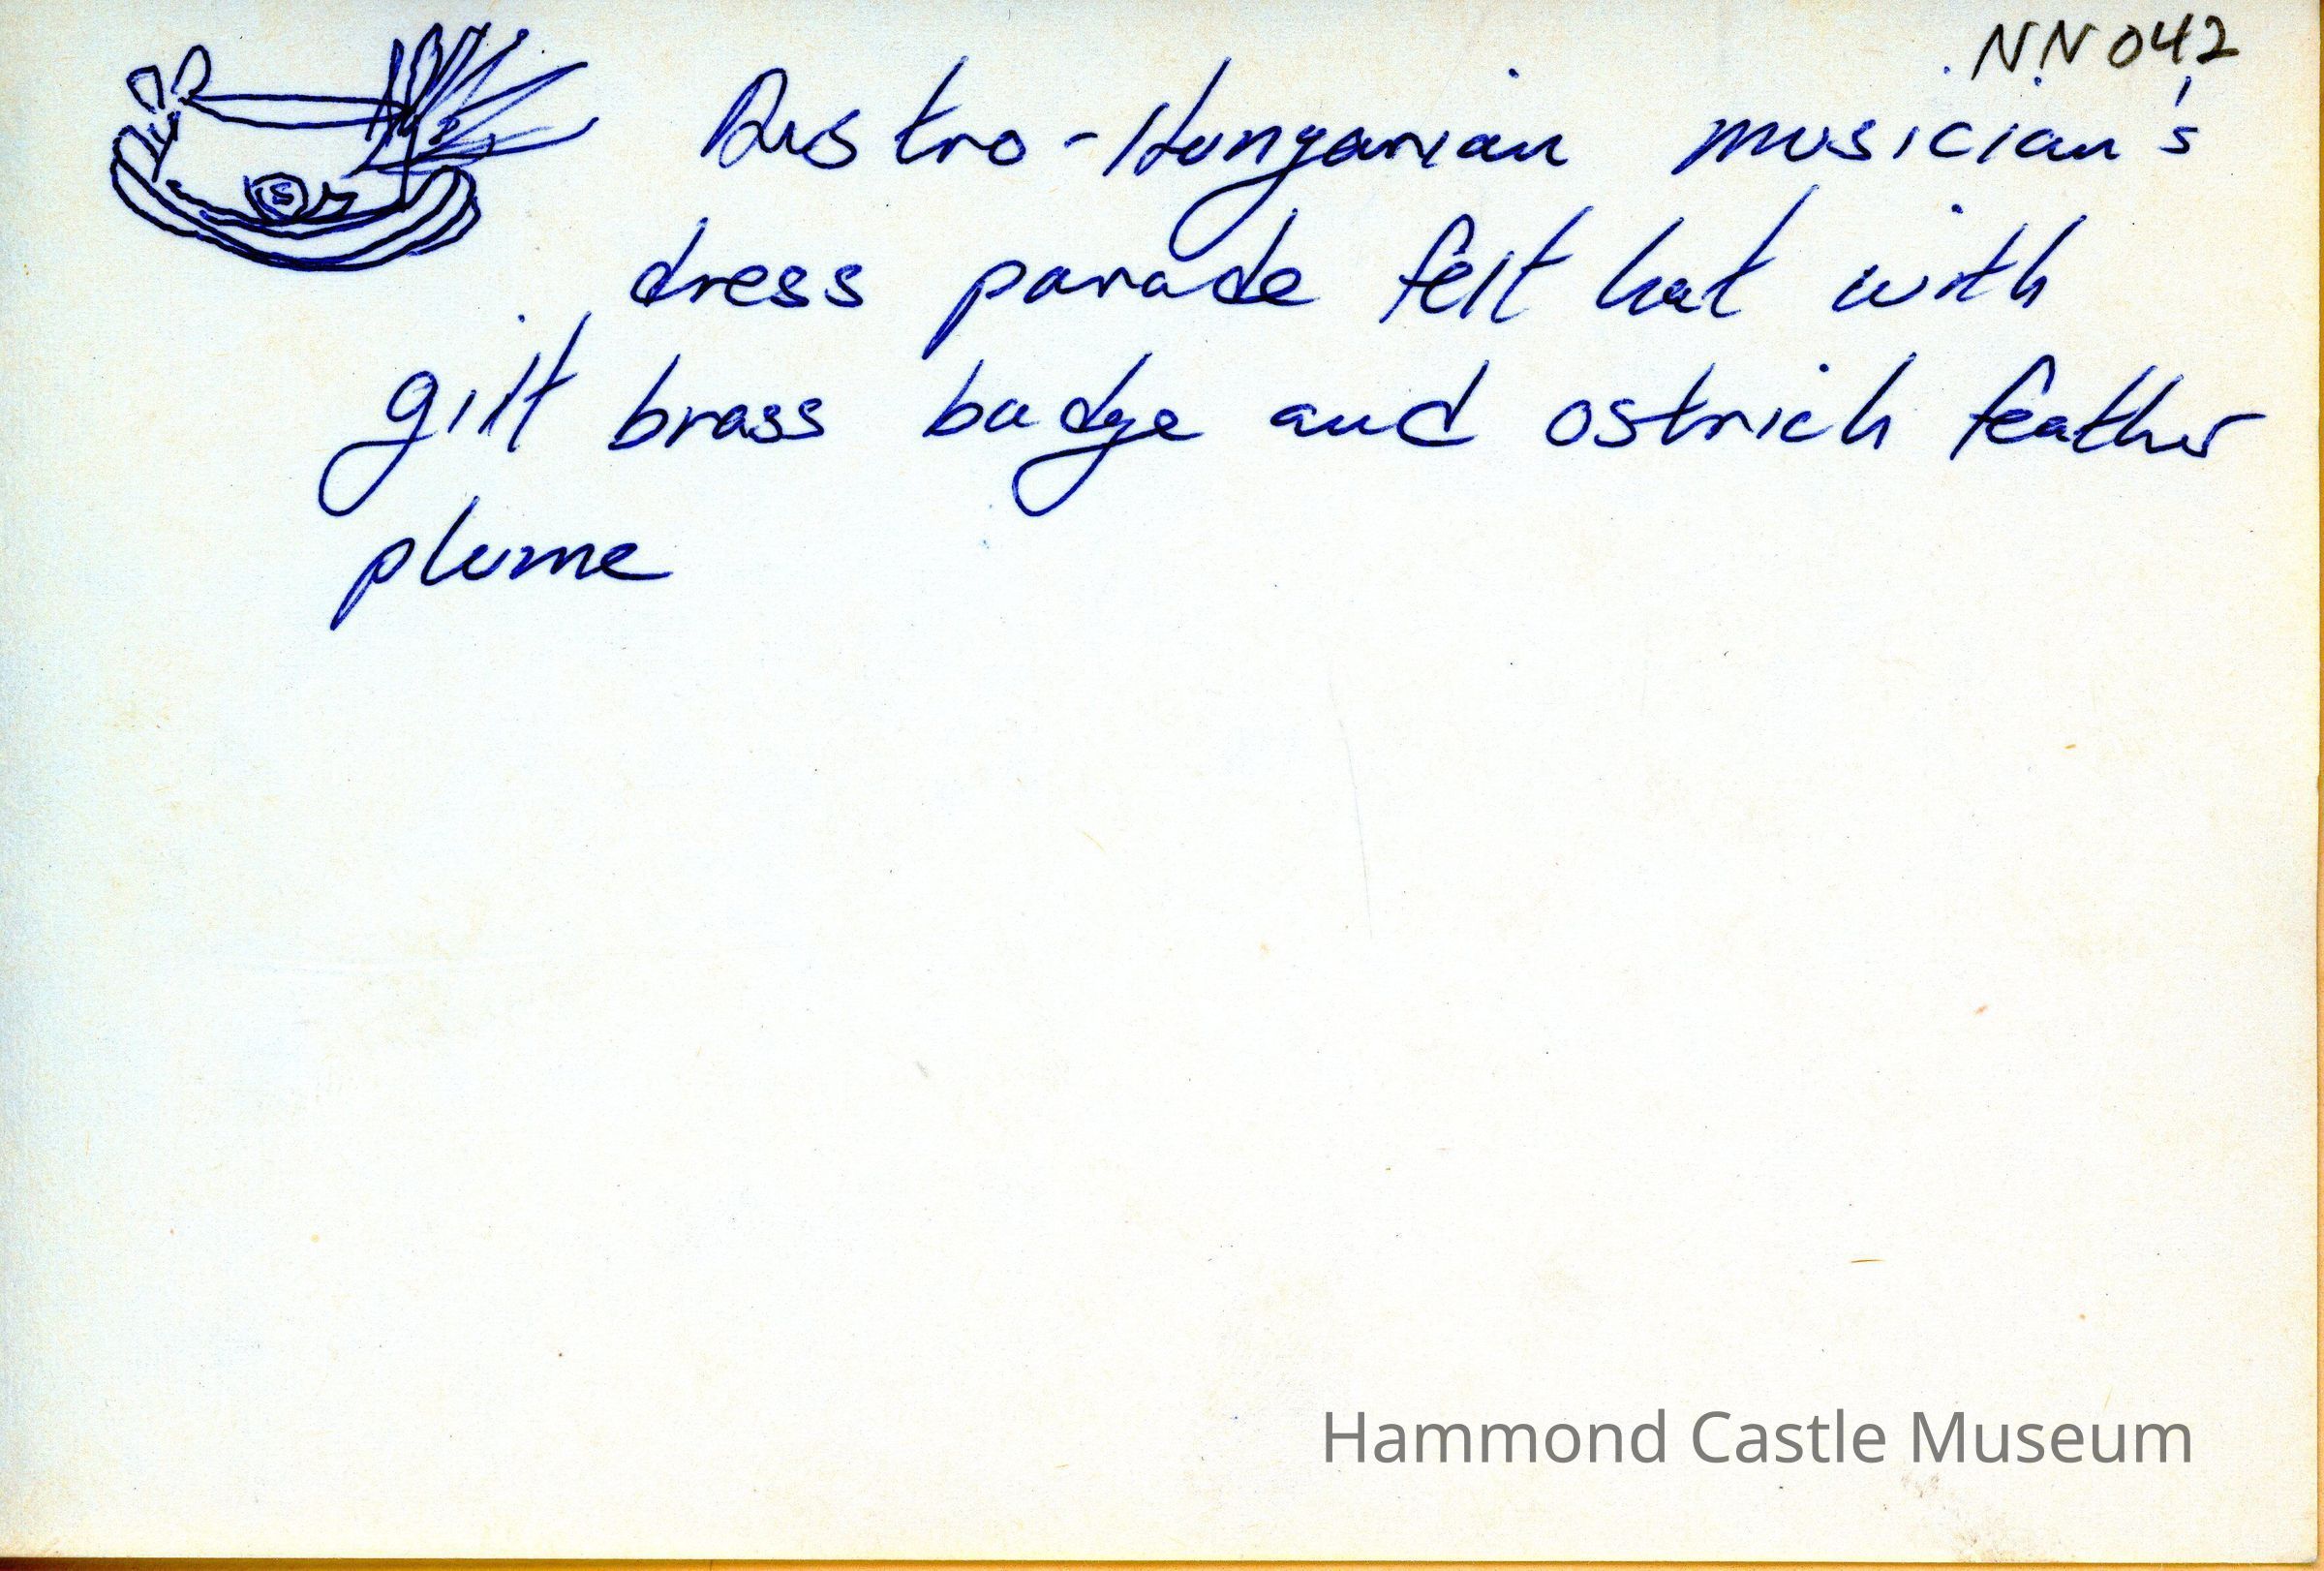 NN042
Austro-Hungarian musician's
dress parade felt hat with
gilt brass badge and ostrich feather
plume
Hammond Castle Museum